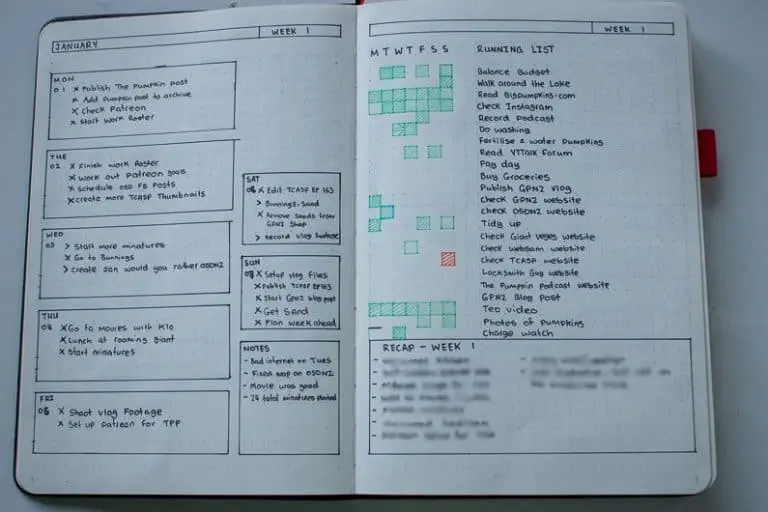 JANUARY
WEEK 1
MON
01 x Publish The Pumpkin post
x Add Pumpkin post to archive
x Check Patreon
x Start Work Roster
TUE
02 x Finish Work Roster
x Work out Patreon goals
x Schedule OSD FB Posts
x Create more TCASP Thumbnails
WED
03 > Start more minatures
x Go to Bunnings
> Create Jan would you rather OSDNZ
THU
04 x Go to Movies with Klo
x Lunch at roaming giant
x Start minatures
FRI
05 x Shoot vlog Footage
x Set up Patreon for TPP
SAT
06 x Edit TCASP EP 163
> Bunnings-Sand
x Remove Seeds from
GPNZ Shop
> Record vlog footage
SUN
x Setup vlog files
x Publish TCASP EP163
x Start GPNZ blog post
x Get Sand
x Plan week ahead
NOTES
- Bad internet on Tues
- Fixed map on OSDNZ
- Movie was good
- 24 total minatures
WEEK 1
M T W T F S S
RUNNING LIST
Balance Budget
Walk around the Lake
Read Bigpumpkins.com
Check Instagram
Record Podcast
Do washing
Fertilise & water pumpkins
Read VTTalk forum
Pay day
Buy Groceries
Publish GPNZ Vlog
Check GPNZ website
Check OSDNZ website
Tidy up
Check Giant Veges website
Check websam website
Check TCASP website
Locksmith Guy website
The Pumpkin Podcast website
GPNZ Blog Post
Ted video
Photos of pumpkins
Charge watch
RECAP - WEEK 1